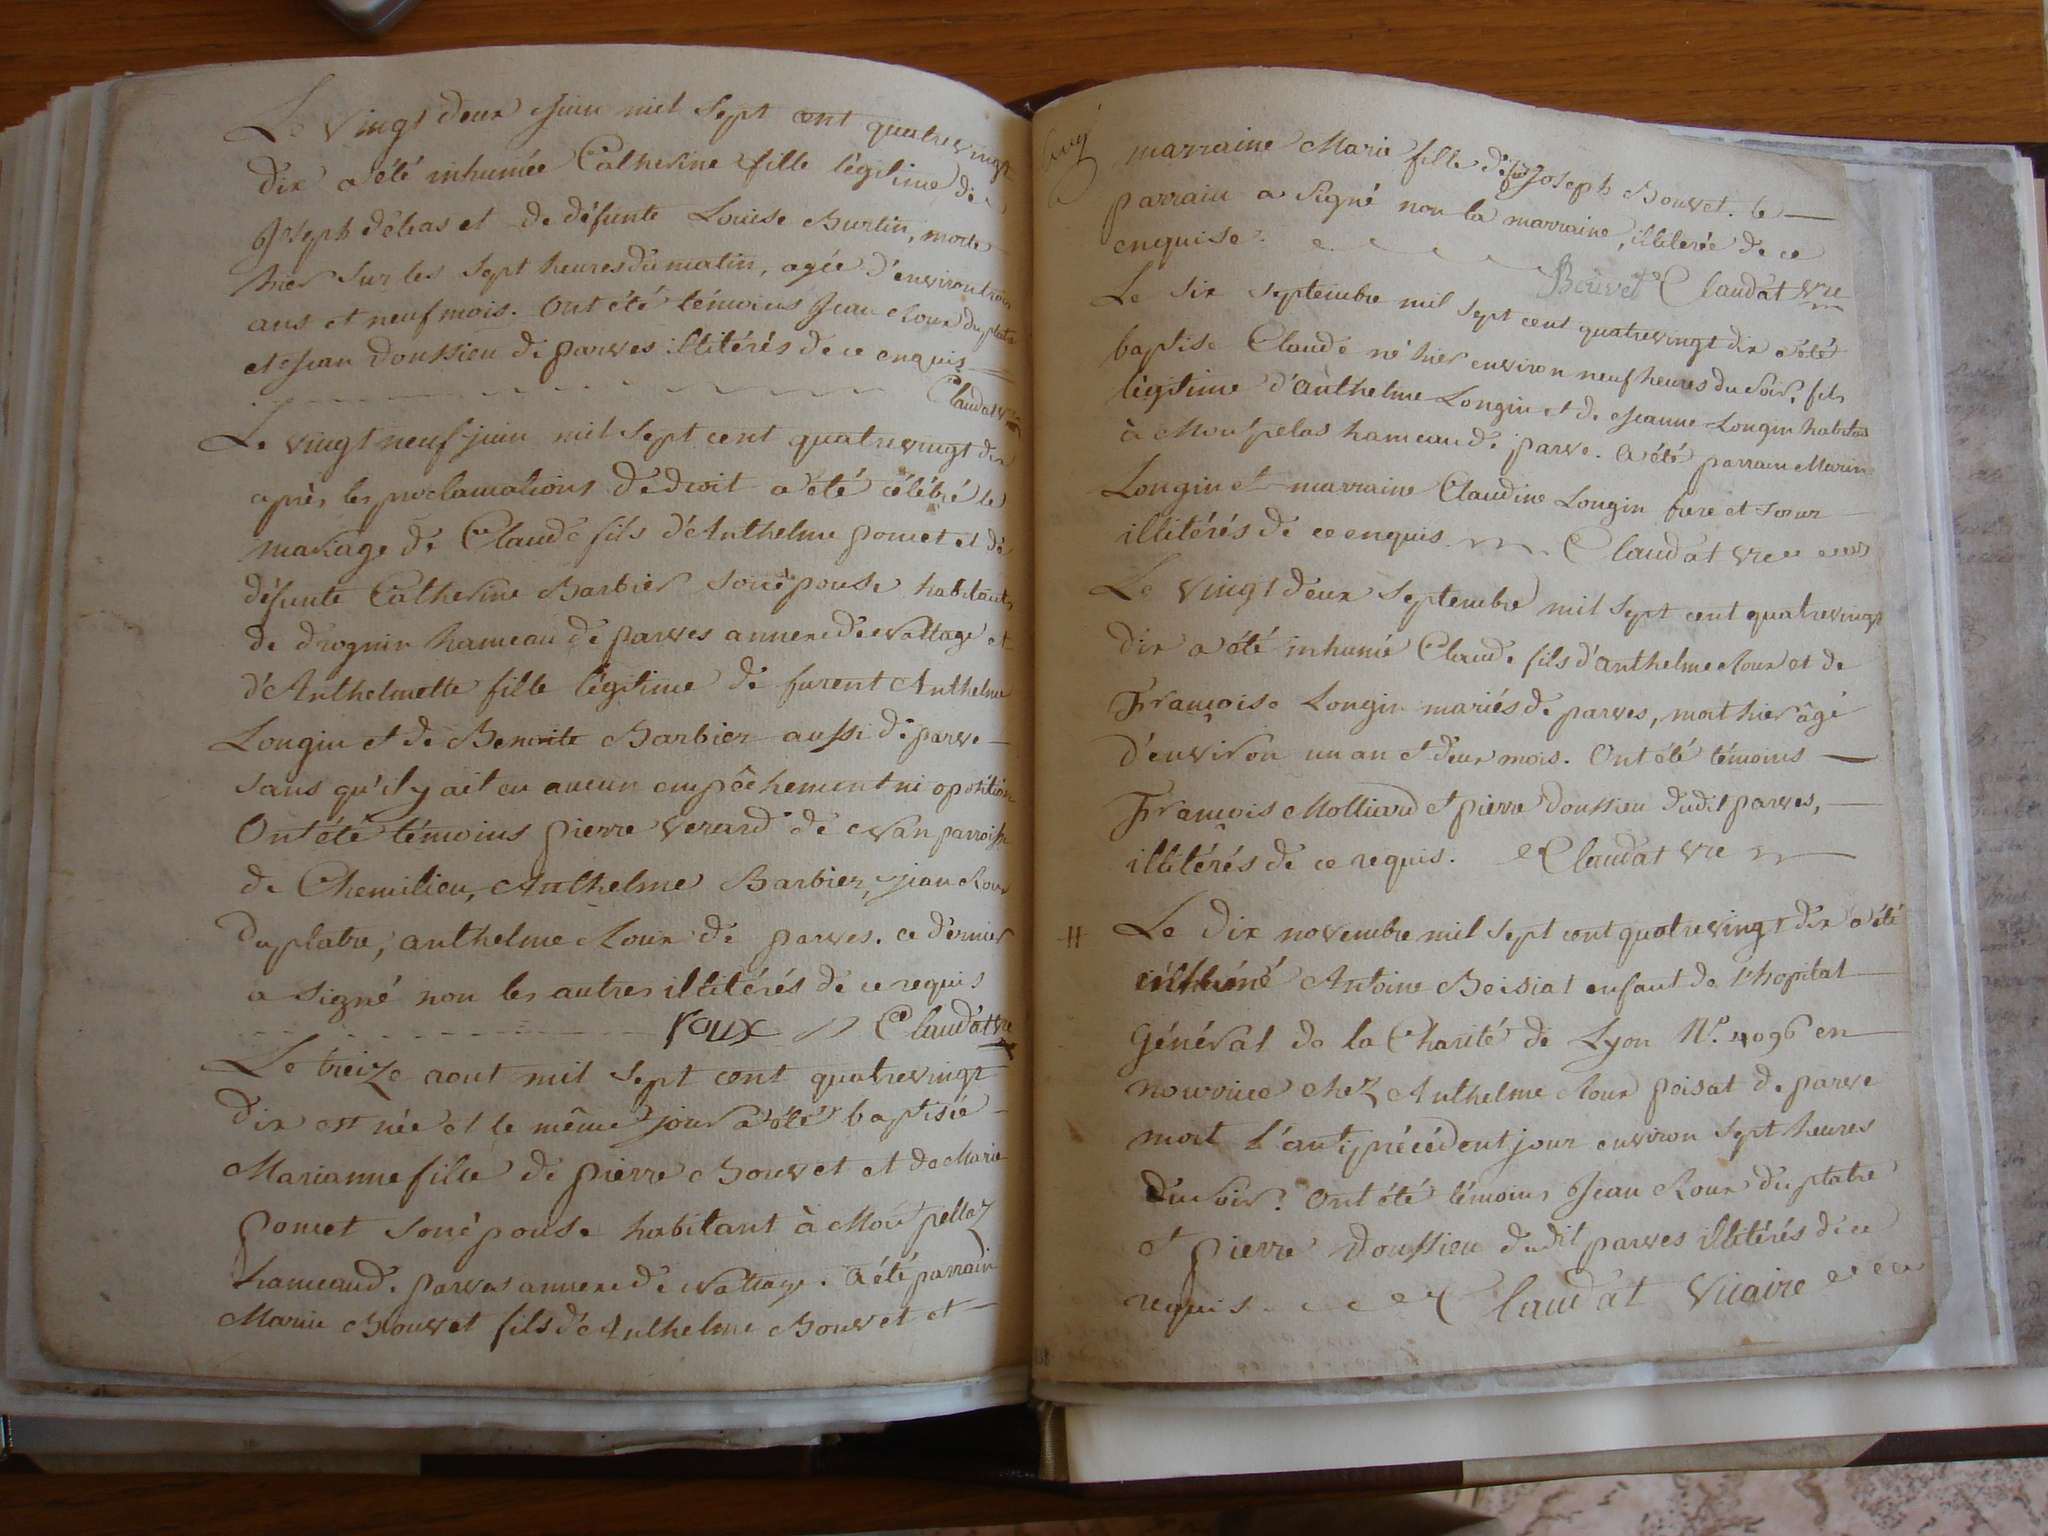 Le vingt deux juin mil sept cent quatrevingt
dix a été inhumée Catherine fille légitime de
Joseph délias et de défunte Louise Burlin, morte
hier sur les sept heures du matin, agée d'environ trois
ans et neuf mois. Ont été témoins Jean Roux du platre
et Jean Doussieu de parves illitérés de ce enquis
Claudat vre
Le vingt neuf juin mil sept cent quatrevingt dix
après les proclamations de droit a été célébré le
mariage de Claude fils d'Anthelme poncet et de
défunte Catherine Barbier son épouse habitants
de drognin hameau de parves annexe de nattage et
d'Anthelmette fille légitime de furent Anthelme
Longin et de Benoite Barbier aussi de parve
sans qu'il y ait eu aucun empêchement ni oposition
Ont été témoins pierre verard de nan parroisse
de Chemilieu, Anthelme Barbier, jean Roux
du platre, anthelme Roux de parves. ce dernier
a signé non les autres illitérés de ce requis
roux Claudat vre
Le treize aout mil sept cent quatrevingt
dix est née et le même jour a été baptisée
Marianne fille de pierre Bouvet et de Marie
poncet son épouse habitant à Mont pellaz
hameau de parves annexe de nattage. A été parrain
Marin Bouvet fils d'Anthelme Bouvet et
marraine Marie fille de feu Joseph Bouvet. le
parrain a signé non la marraine, illiterée de ce
enquise.
Bouvet Claudat vre
Le six septembre mil sept cent quatrevingt dix a été
baptisé Claude né hier environ neuf heures du soir, fils
légitime d'anthelme Longin et de Jeanne Longin habitans
à Mont pelas hameau de parve. A été parrain Marin
Longin et marraine Claudine Longin frere et soeur
illitérés de ce enquis. Claudat vre
Le vingt deux septembre mil sept cent quatrevingt
dix a été inhumé Claude fils d'anthelme Roux et de
Françoise Longin mariés de parves, mort hier âgé
d'environ un an et deux mois. Ont été témoins
François Molliard et pierre Doussieu dudit parves,
illitérés de ce requis. Claudat vre
Le dix novembre mil sept cent quatrevingt dix a été
inhumé Antoine Beisiat enfant de l'hopital
Général de la Charité de Lyon N.° 4096 en
nourrice chez Anthelme Roux poisat de parve
mort l'antiprécédent jour environ sept heures
du soir. Ont été témoins Jean Roux du platre
et pierre Doussieu dudit parves illitérés de ce
requis. Claudat Vicaire